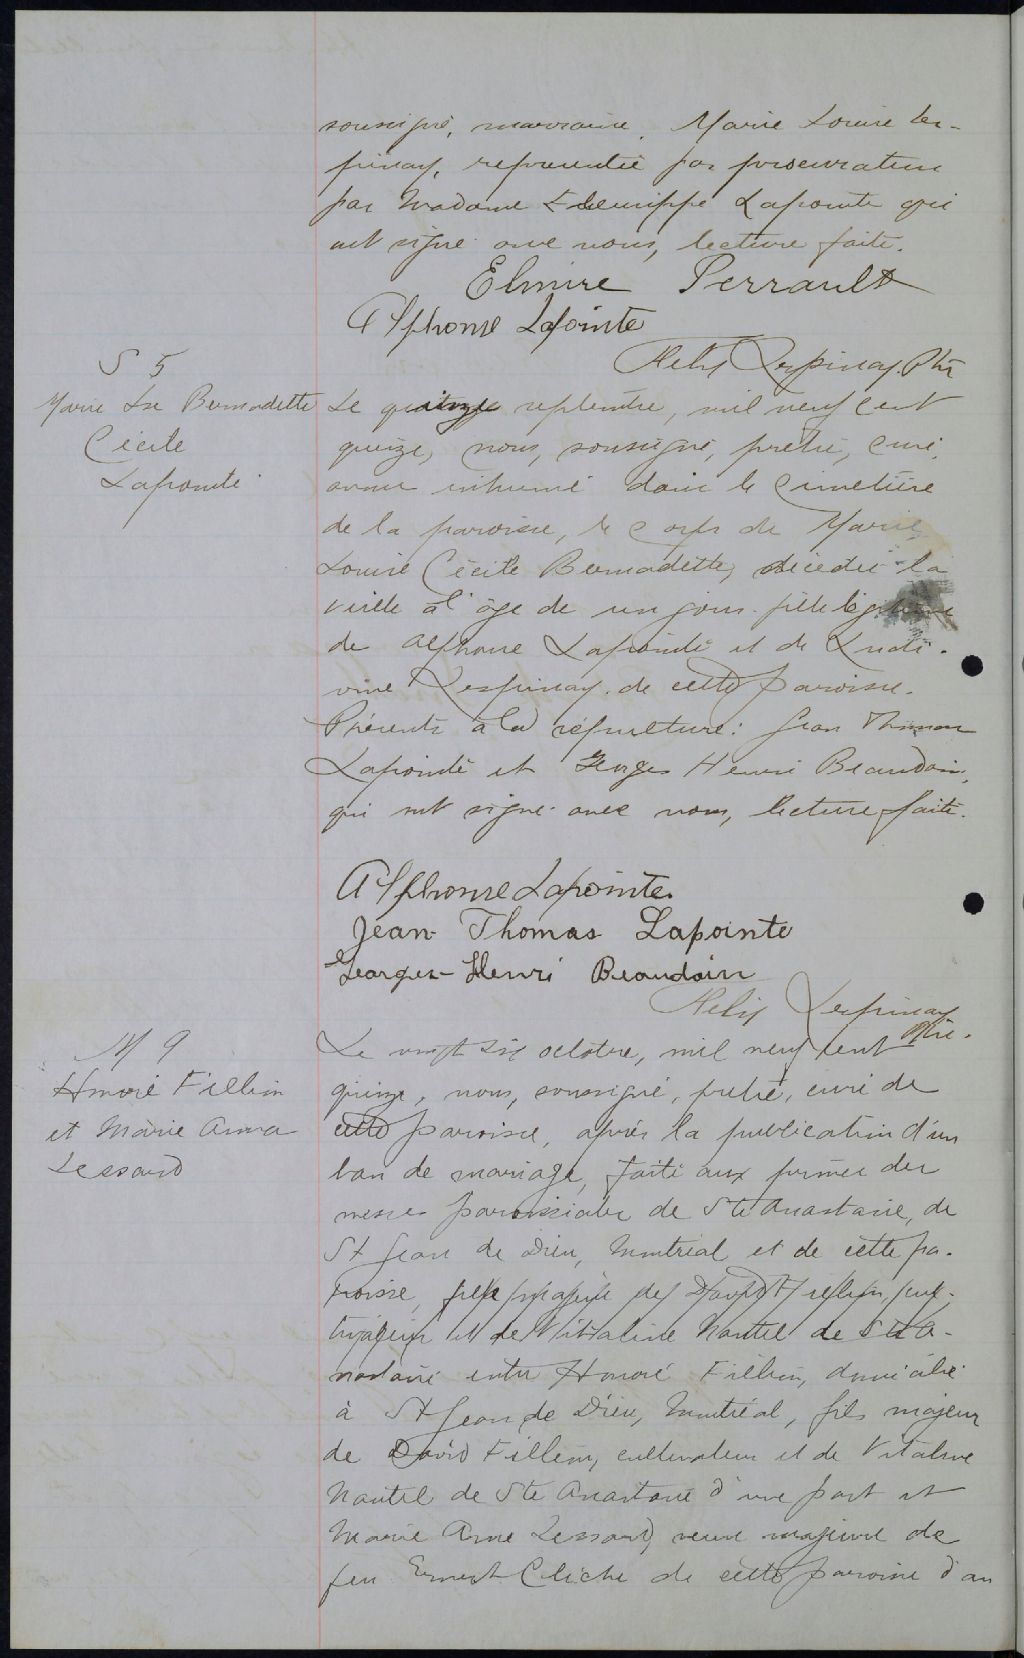 soussigné, marraine, Marie Louise Les-
pinay, représentée par procuration
par Madame Lapointe qui
ont signé avec nous, lecture faite.
Elmire Perrault
Alphonse Lapointe
Félix Lespinay Ptre
S 5
Marie Lse Bernadette
Cécile
Lapointe
Le quinze septembre, mil neuf cent
quinze, nous, soussigné, prêtre, curé,
avons inhumé dans le cimetière
de la paroisse, le corps de Marie
Louise Cécile Bernadette, décédée la
veille à l'âge de un jour fille légitime
de Alphonse Lapointe et de Ludi-
vine Lespinay de cette paroisse.
Présents à la sépulture: Jean Thomas
Lapointe et Georges Henri Beaudoin,
qui ont signé avec nous, lecture faite.
Alphonse Lapointe
Jean Thomas Lapointe
Georges-Henri Beaudoin
Félix Lespinay
Ptre.
M 9
Honoré Fillion
et Marie Anna
Lessard
Le vingt six octobre, mil neuf cent
quinze, nous, soussigné, prêtre, curé de
cette paroisse, après la publication d'un
ban de mariage, faite aux prônes des
messes paroissiales de Ste Anastasie, de
St Jean de Dieu, Montréal et de cette pa-
roisse, fils majeur de David Fillion, cul-
tivateur et de Vitaline Nantel de Ste A-
nastasie entre Honoré Fillion, domicilié
à St Jean de Dieu, Montréal, fils majeur
de David Fillion, cultivateur et de Vitaline
Nantel de Ste Anastasie d'une part et
Marie Anne Lessard, veuve majeure de
feu Ernest Cliche de cette paroisse d'au